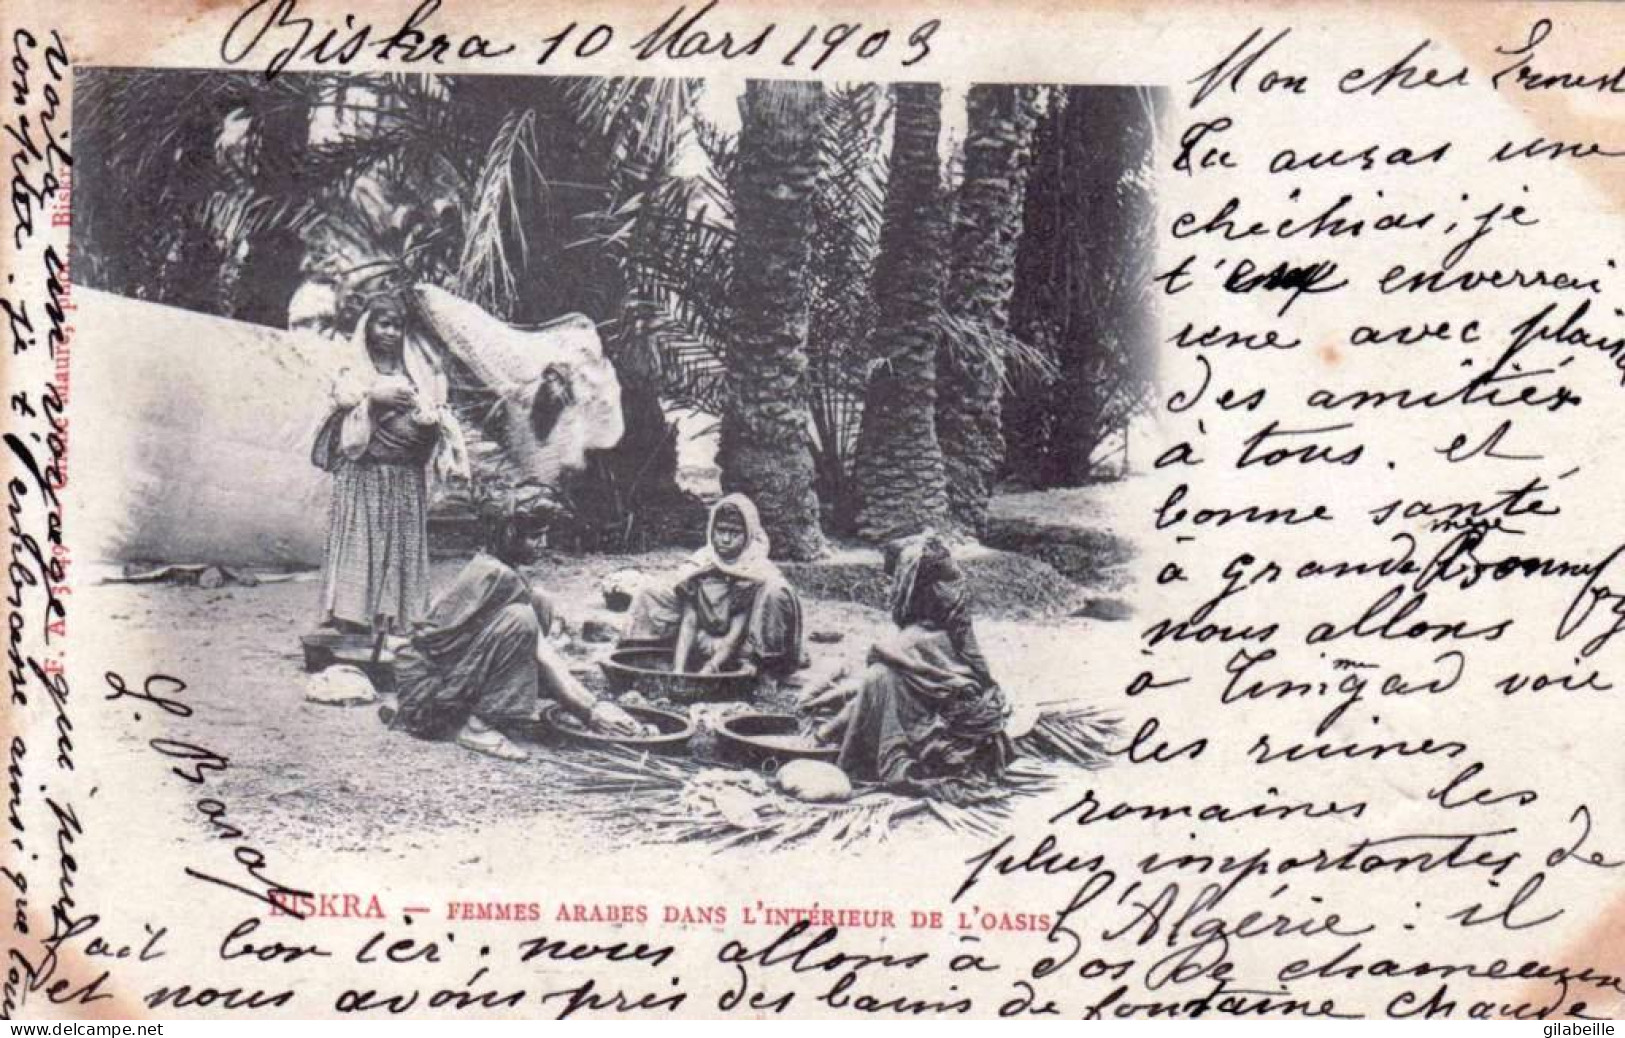 Biskra 10 Mars 1903
Mon cher Ernest
Tu auras une
chéchias ; je
t' enverrai
une avec plaisir
des amitiés
à tous. et
bonne santé
à grande mère
nous allons
à Timgad voir
les ruines
romaines les
plus importantes de
l'Algérie : il
fait bon ici. nous allons à dos de chameaux
et nous avons pris des bains de fontaine chaude
voilà un voyage qui peut
compter. je t'embrasse ainsi que tous
BISKRA — FEMMES ARABES DANS L'INTÉRIEUR DE L'OASIS
Maure, phot., Biskra
gilabeille